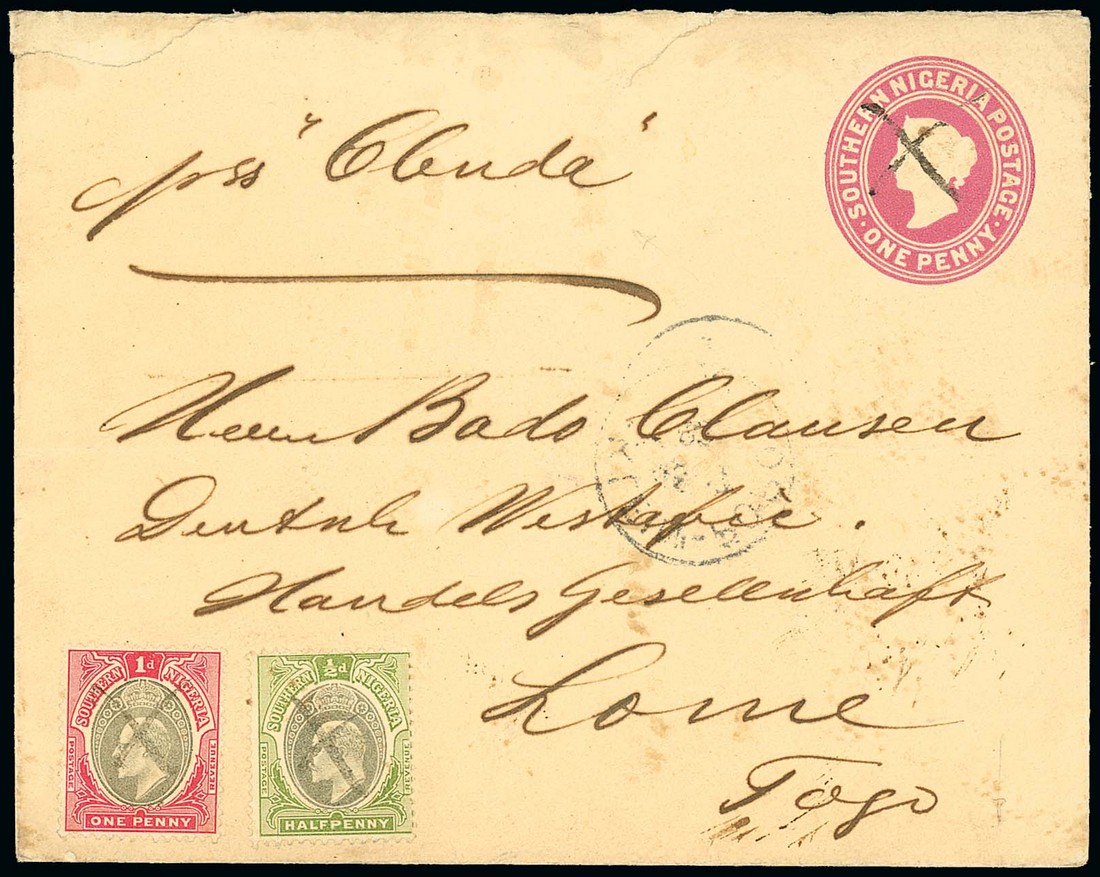 SOUTHERN NIGERIA POSTAGE
ONE PENNY
per ss "Elenda"
Herrn Bado Clausen
Deutsch Westafric.
Handels Gesellschaft
Lome
Togo
1d
SOUTHERN NIGERIA
POSTAGE
REVENUE
ONE PENNY
½d
SOUTHERN NIGERIA
POSTAGE
REVENUE
HALFPENNY